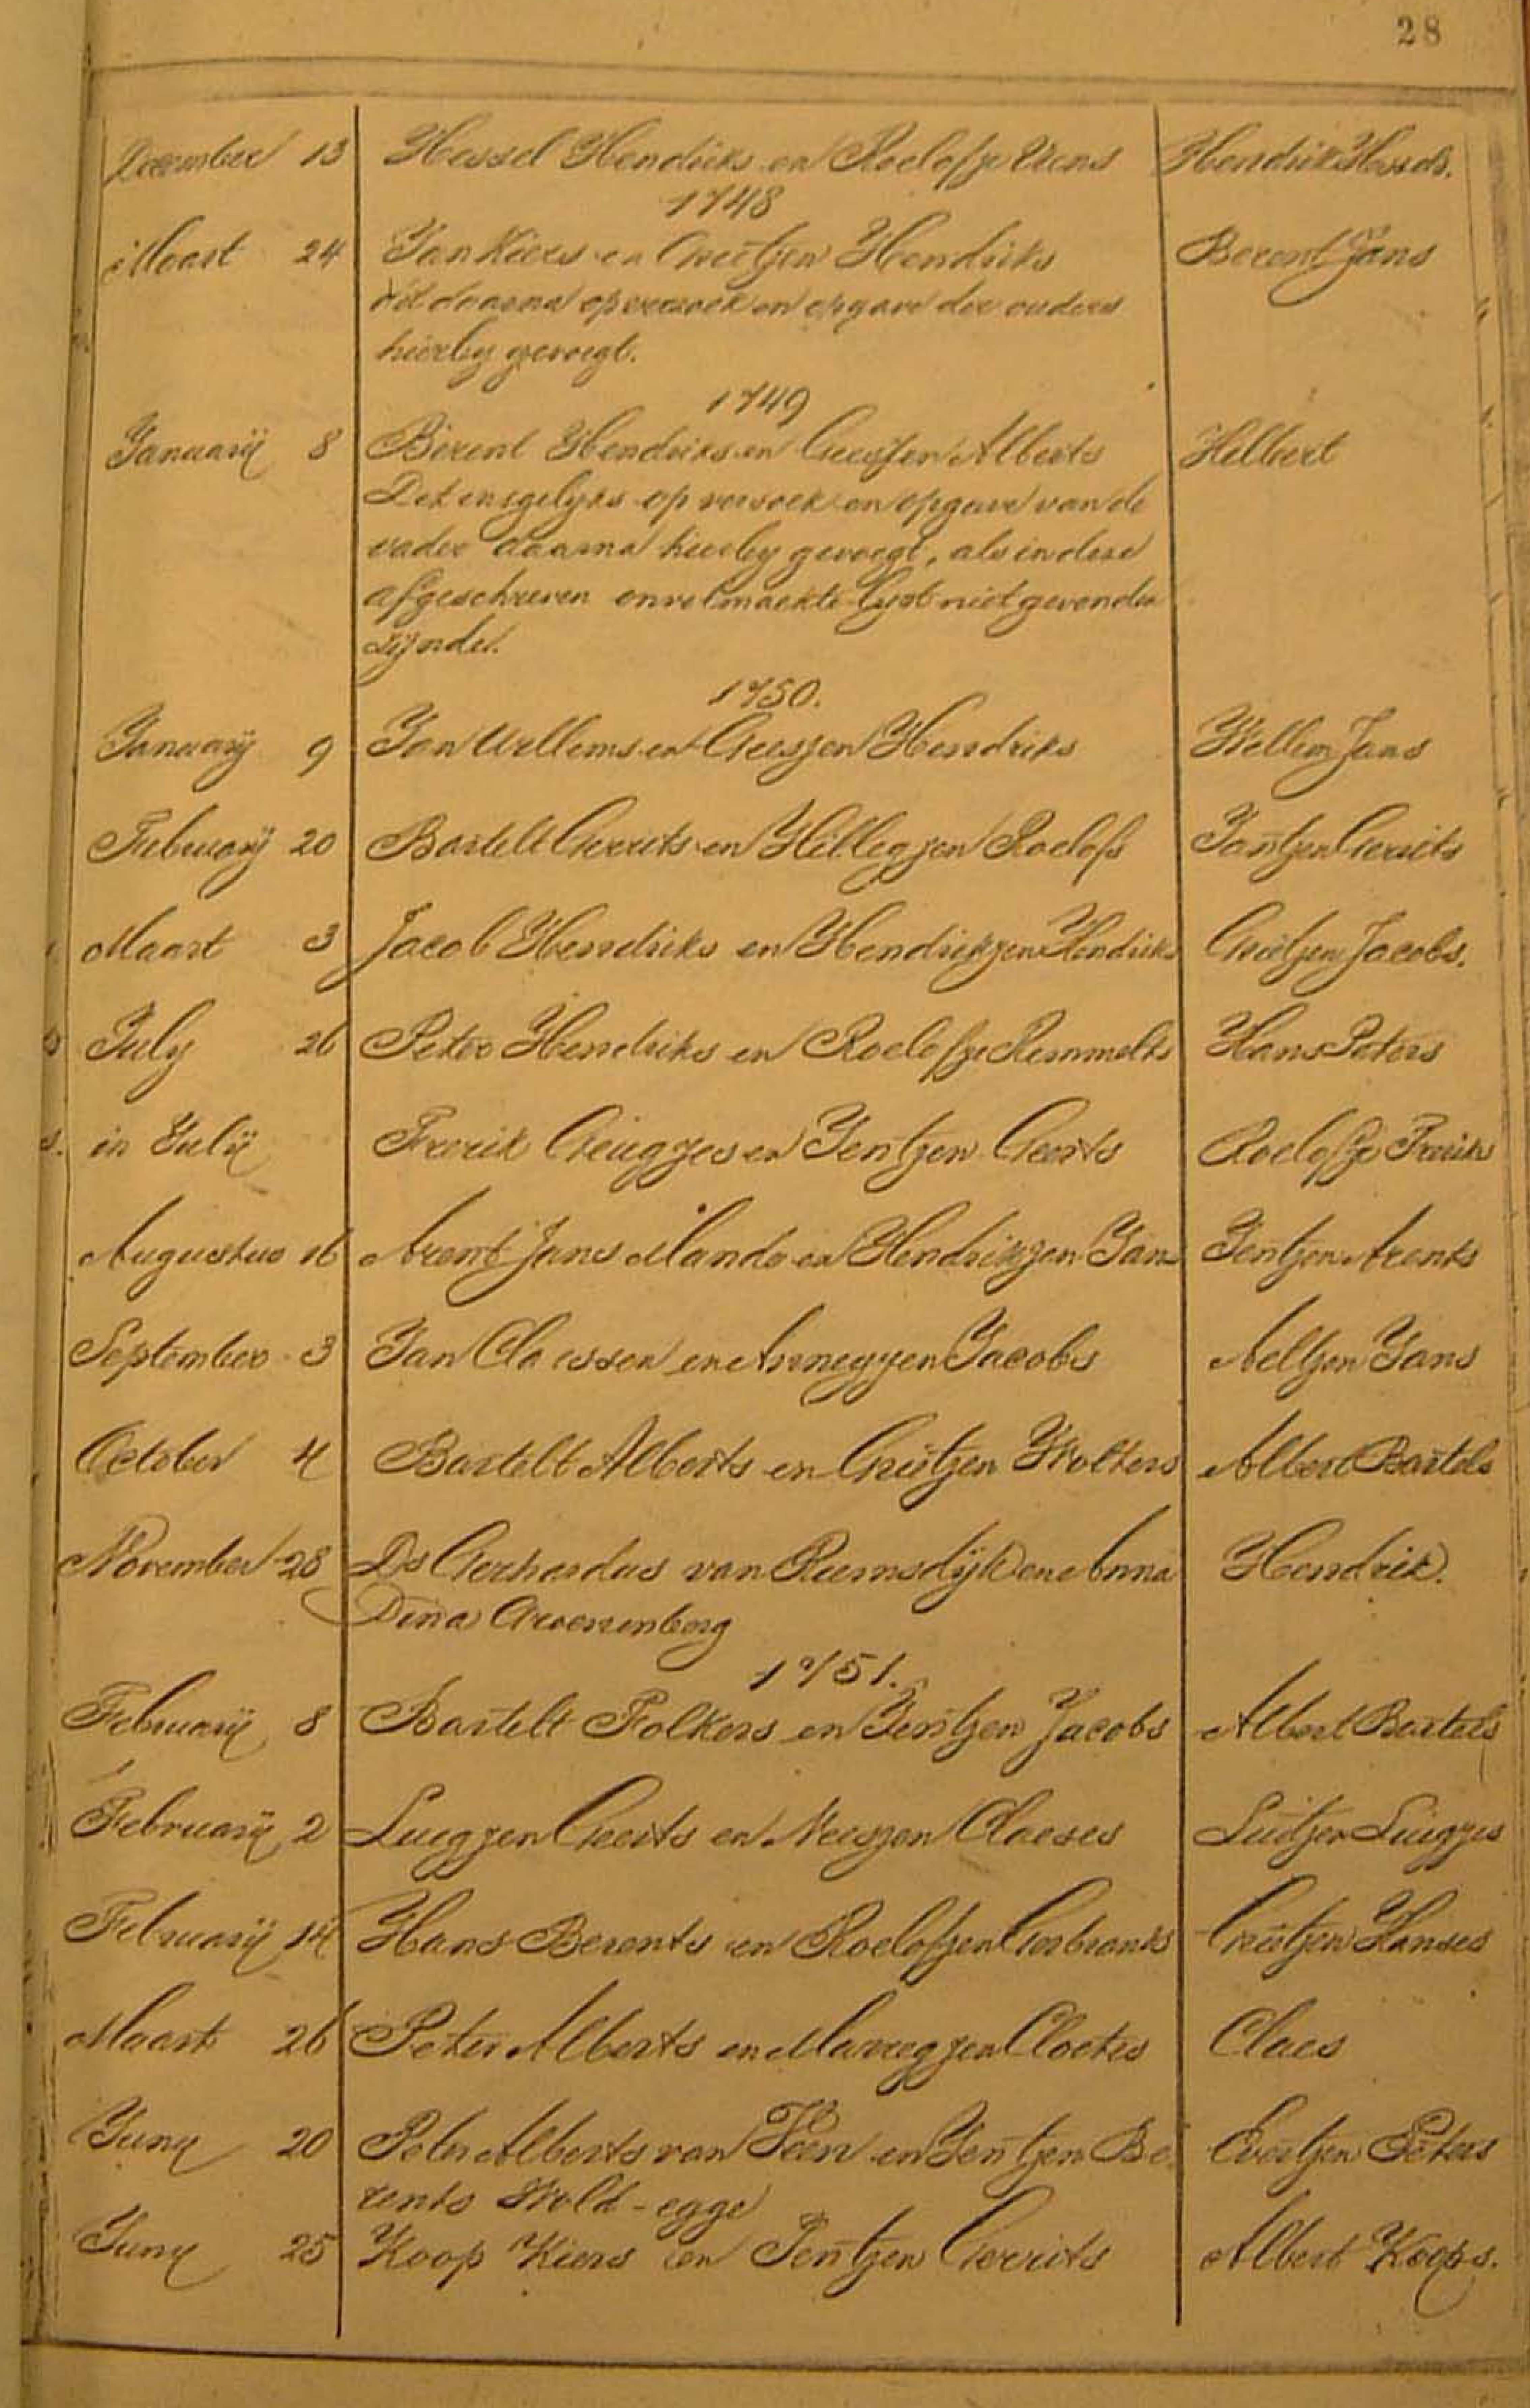 28
December 13 Hessel Hendriks en Roelofje Uens Hendrik Hessels.
1748
Maart 24 Jan Kiers en Geertjen Hendriks Berent Jans
dit daarna op versoek en opgave der ouders
hierby gevoegt.
1749
Januarij 8 Berent Hendriks en Geesjen Alberts Helbert
Dit insgelyks op versoek en opgave van de
vader daarna hierby gevoegt, als in dese
afgeschreven onvolmaekte lyst niet gevonden
zijnde.
1750.
Januarij 9 Jan Willems en Geesjen Hendriks Willem Jans
February 20 Bartelt Gerrits en Hillegjen Roelofs Jantjen Gerrits
Maart 3 Jacob Hendriks en Hendrikjen Hendriks Geertjen Jacobs.
July 26 Peter Hendriks en Roelofje Remmelts Hans Peters
in Julij Frerik Geugjes en Jentjen Geerts Roelofje Freriks
Augustus 16 Arent Jans Mando en Hendrikjen Jans Jentjen Arents
September 3 Jan Claessen en Annegjen Jacobs Aeltjen Jans
October 4 Bartelt Alberts en Geertjen Wolters Albert Bartels
November 28 Ds Gerhardus van Reemsdijk en Anna Hendrik.
Dina Groenenberg
1751.
Februarij 8 Bartelt Folkers en Jentjen Jacobs Albert Bartels
Februarij 2 Luegjen Geerts en Neesjen Claeses Luitjen Luigjes
Februarij 14 Hans Berents en Roelofjen Gerbrants Geertjen Hanses
Maart 26 Peter Alberts en Marregjen Cloetes Claes
Juny 20 Peter Alberts van Veen en Jentjen Be Evertjen Peters
rents Wold-egge
Juny 25 Koop Kiers en Jentjen Gerrits Albert Koops.